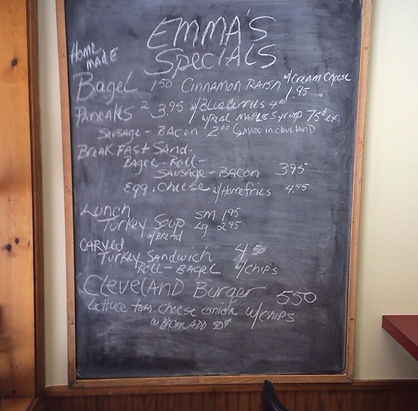 EMMA'S
Specials
HOME MADE
Bagel 1.50 Cinnamon Raisn w/Cream Cheese 1.95
Pancakes 2 3.95 w/Blueberries
w/Real Maple Syrup 75¢ ex.
Sausage - Bacon 2.00 Made in Cleveland
Breakfast Sand.
Bagel - Roll -
Sausage - Bacon 3.95
Egg. Cheese w/Homefries 4.95
Lunch
Turkey Soup Sm 1.95
w/Bread Lg 2.95
CARVED
Turkey Sandwich 4.50
Roll - Bagel w/chips
Cleveland Burger 5.50
Lettuce tom cheese onion w/chips
w/Bacon ADD